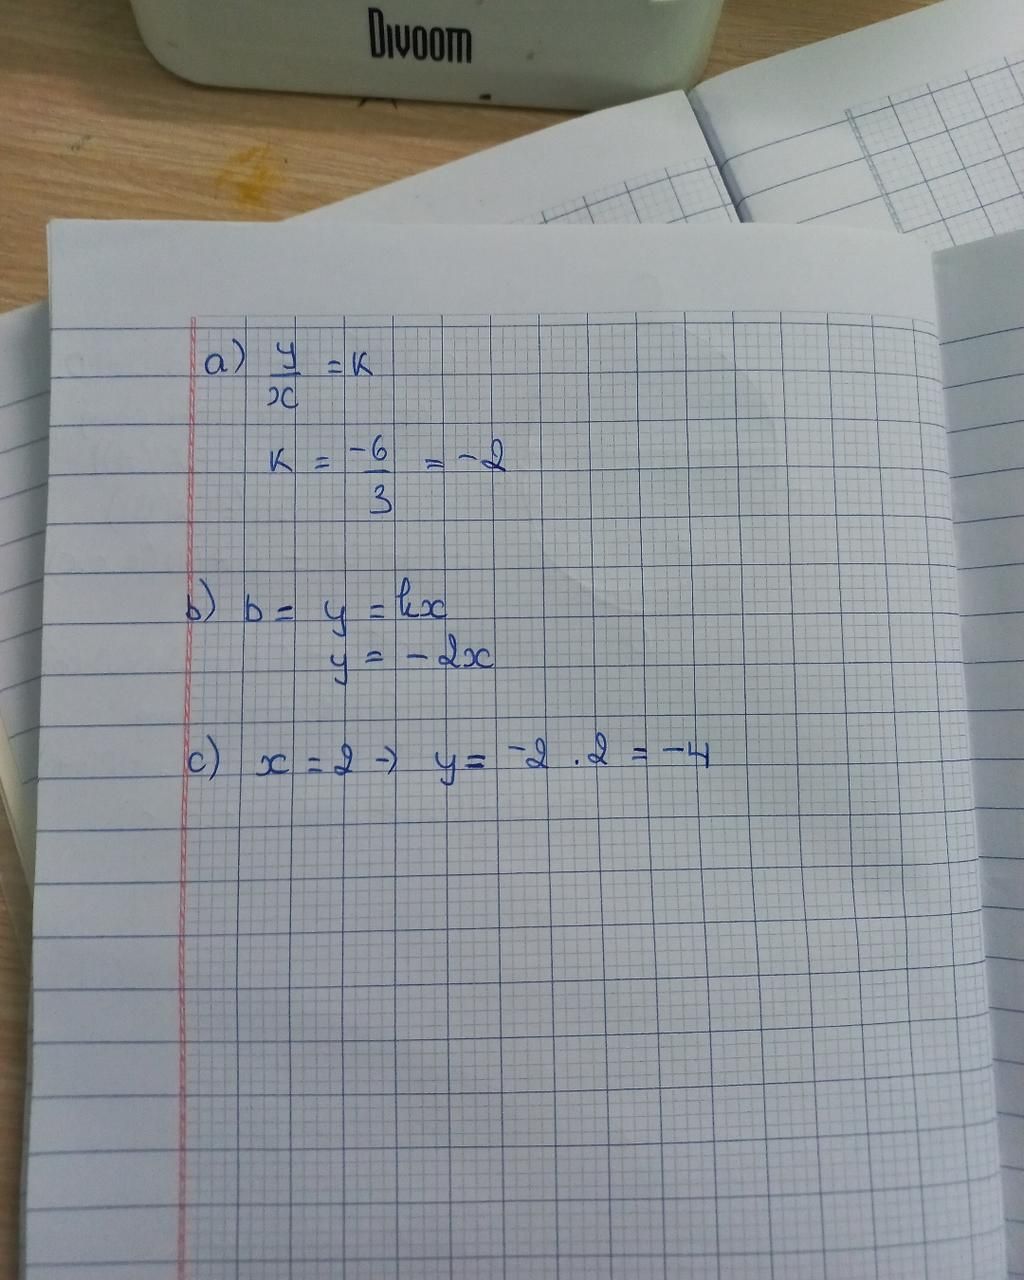 DIVOOM
a) y/x = k
k = -6/3 = -2
b) b = y = kx
y = -2x
c) x = 2 → y = -2 . 2 = -4